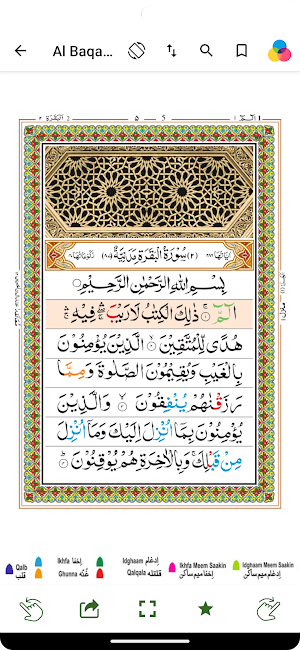 Al Baqa...
٥ 5
سُوْرَةُ الْبَقَرَةِ مَدَنِيَّةٌ (٢)
بِسْمِ اللهِ الرَّحْمٰنِ الرَّحِيْمِ
الٓمّٓ ۚ ذٰلِكَ الْكِتٰبُ لَا رَيْبَ ۛ فِيْهِ ۛ
هُدًى لِّلْمُتَّقِيْنَ ۙ الَّذِيْنَ يُؤْمِنُوْنَ
بِالْغَيْبِ وَيُقِيْمُوْنَ الصَّلٰوةَ وَمِمَّا
رَزَقْنٰهُمْ يُنْفِقُوْنَ ۙ وَالَّذِيْنَ
يُؤْمِنُوْنَ بِمَآ اُنْزِلَ اِلَيْكَ وَمَآ اُنْزِلَ
مِنْ قَبْلِكَ ۚ وَبِالْاٰخِرَةِ هُمْ يُوْقِنُوْنَ ؕ
Qalb قلب
Ikhfa إخفا
Ghunna غُنّه
Idghaam إدغام
Qalqala قلقله
Ikhfa Meem Saakin إخفا ميم ساكن
Idghaam Meem Saakin إدغام ميم ساكن